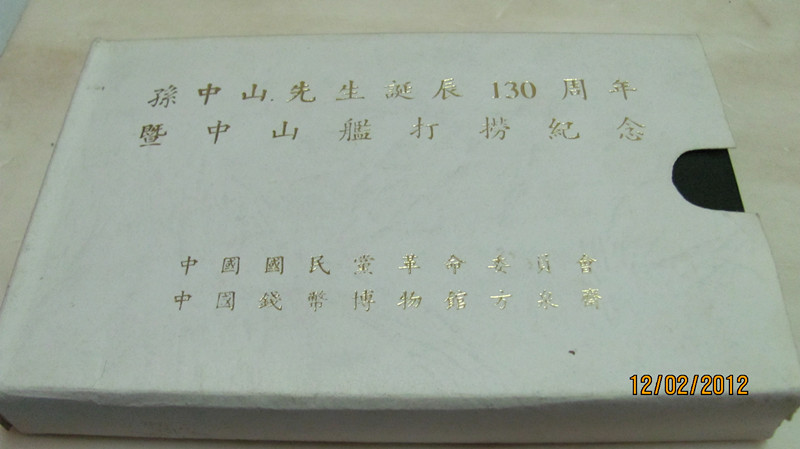 孫中山先生誕辰130周年
暨中山艦打撈紀念
中國國民黨革命委員會
中國錢幣博物館方泉齋
12/02/2012